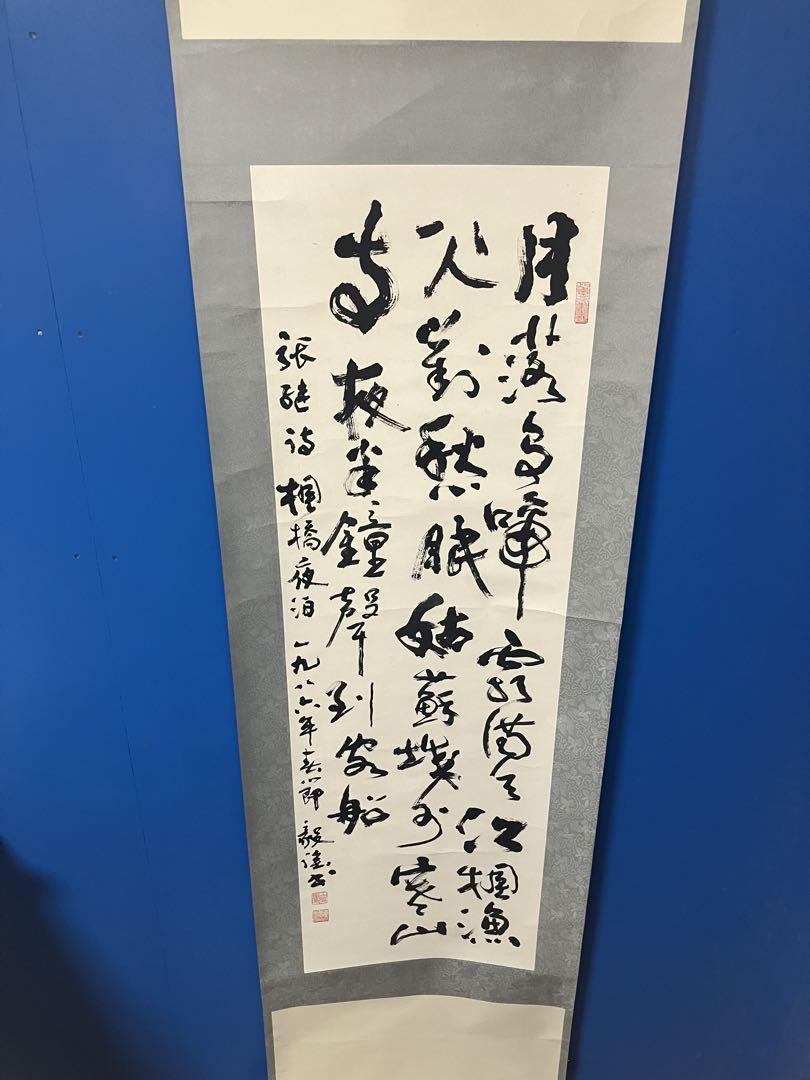 月落烏啼霜滿天江楓漁
火對愁眠姑蘇城外寒山
寺夜半鐘聲到客船
張継詩 楓橋夜泊 一九八六年春節 毅 書